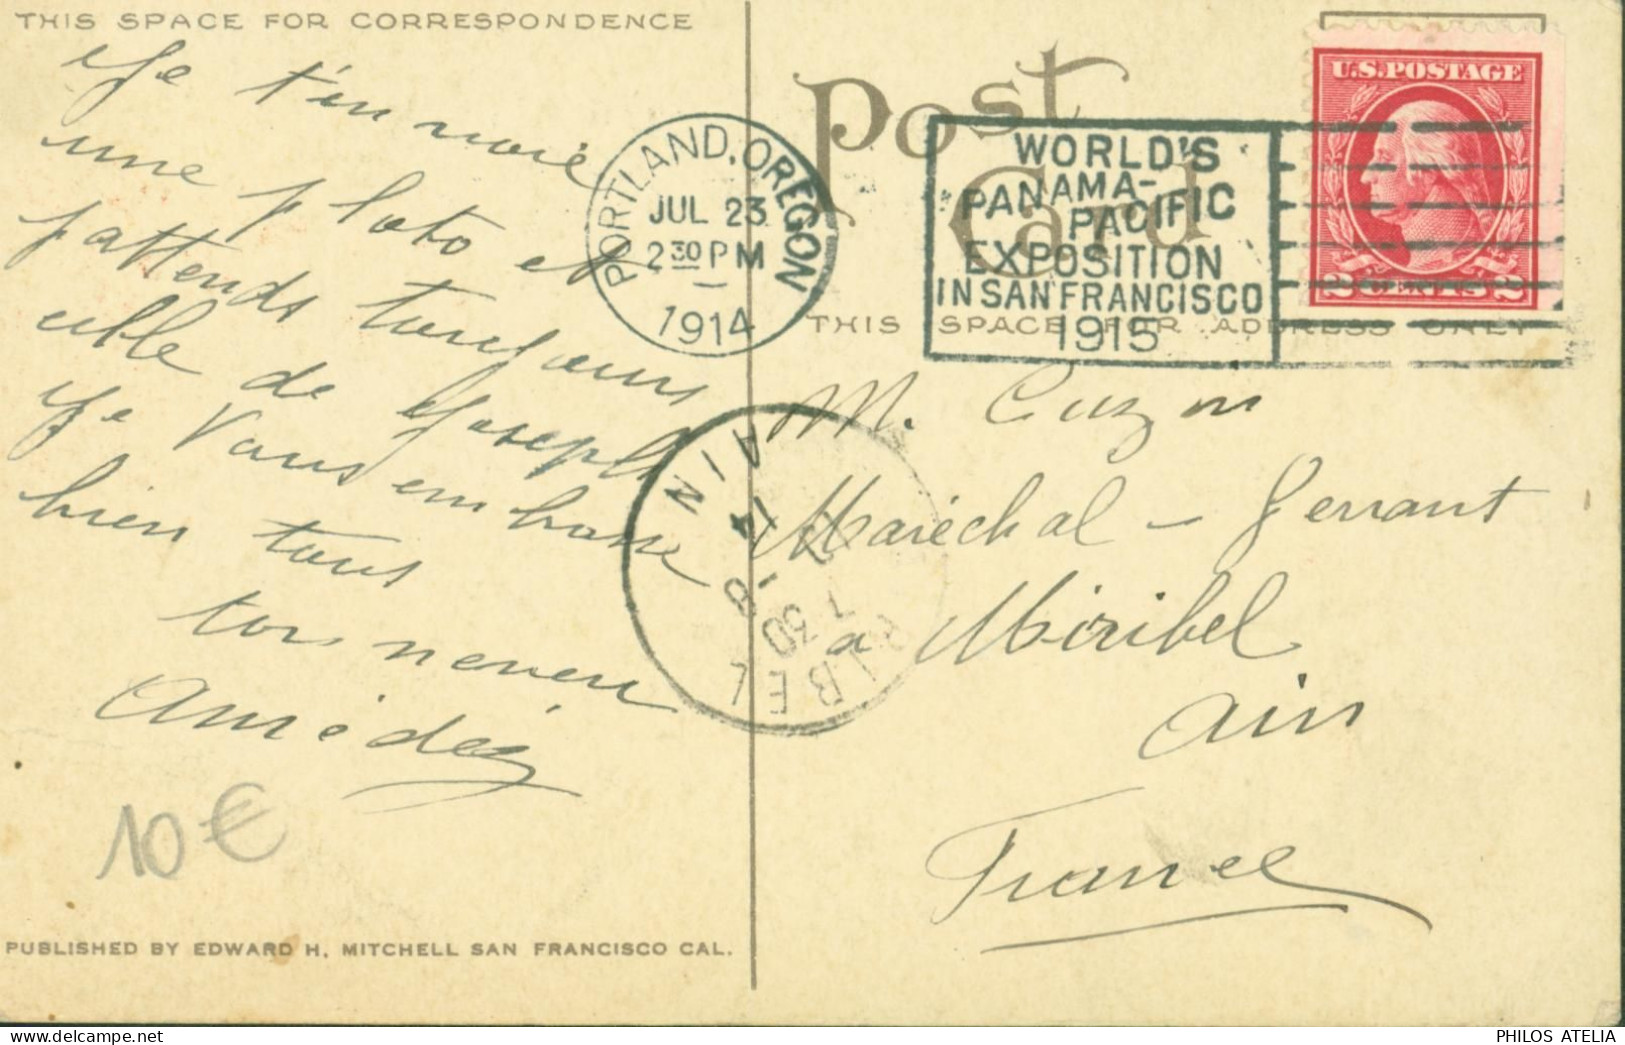 THIS SPACE FOR CORRESPONDENCE
Je t'envoie
une photo et
j'attends toujours
celle de Joseph
Je Vous embrasse
bien tous
ton neveu
Amédée
10€
PUBLISHED BY EDWARD H. MITCHELL SAN FRANCISCO CAL.
PORTLAND, OREGON
JUL 23
2 30 PM
1914
Post
Card
WORLD'S
PANAMA-
PACIFIC
EXPOSITION
IN SAN FRANCISCO
1915
U.S. POSTAGE
2 CENTS 2
THIS SPACE FOR ADDRESS ONLY
M. Cuzin
Maréchal - Ferrant
a Miribel
Ain
France
MIRIBEL
AIN
7 30
8
14
PHILOS ATELIA